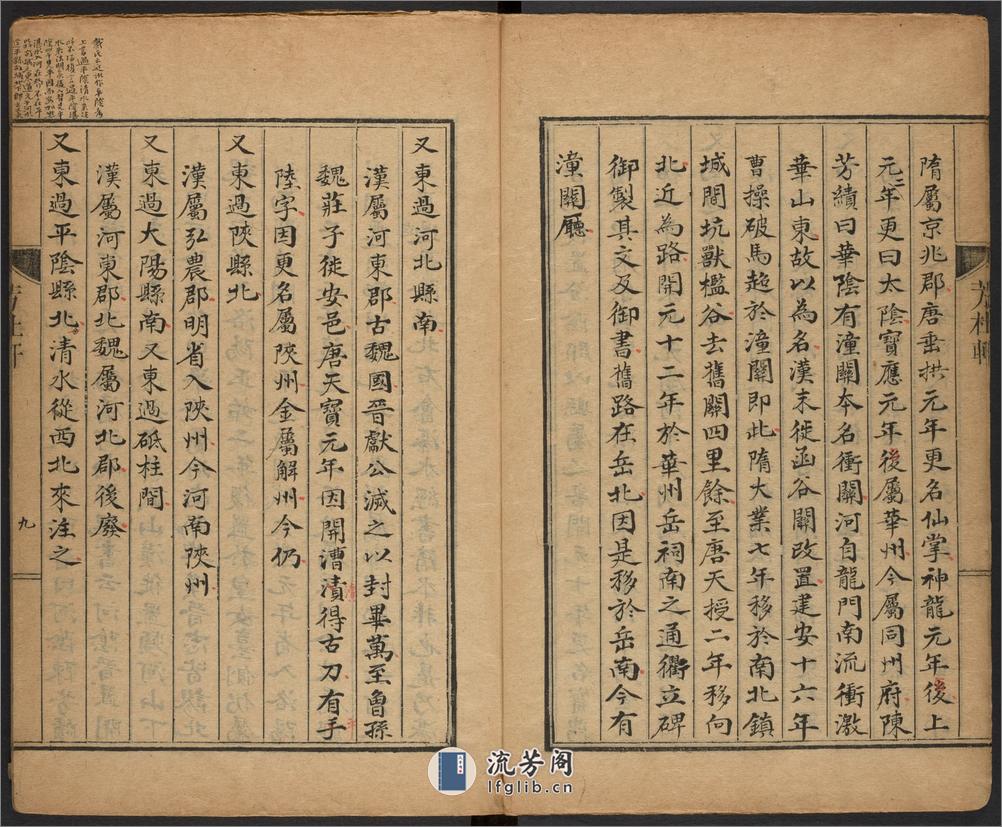 隋屬京兆郡唐垂拱元年更名仙掌神龍元年後上
元二年更曰太陰寶應元年後屬華州今屬同州府陳
芳績曰華陰有潼關本名衝關河自龍門南流衝激
華山東故以為名漢末徙函谷關改置建安十六年
曹操破馬超於潼關即此隋大業七年移於南北鎮
城間坑獸檻谷去舊關四里餘至唐天授二年移向
北近為路開元十二年於華州岳祠南之通衢立碑
御製其文及御書舊路在岳北因是移於岳南今有
潼關廳
又東過河北縣南
漢屬河東郡古魏國晉獻公滅之以封畢萬至魯孫
魏莊子徙安邑唐天寶元年因開漕瀆得古刀有手
陸字因更名屬陝州金屬解州今仍
又東過陝縣北
漢屬弘農郡明省入陝州今河南陝州
又東過大陽縣南又東過砥柱間
漢屬河東郡北魏屬河北郡後廢
又東過平陰縣北清水從西北來注之
九
流芳阁
lfglib.cn